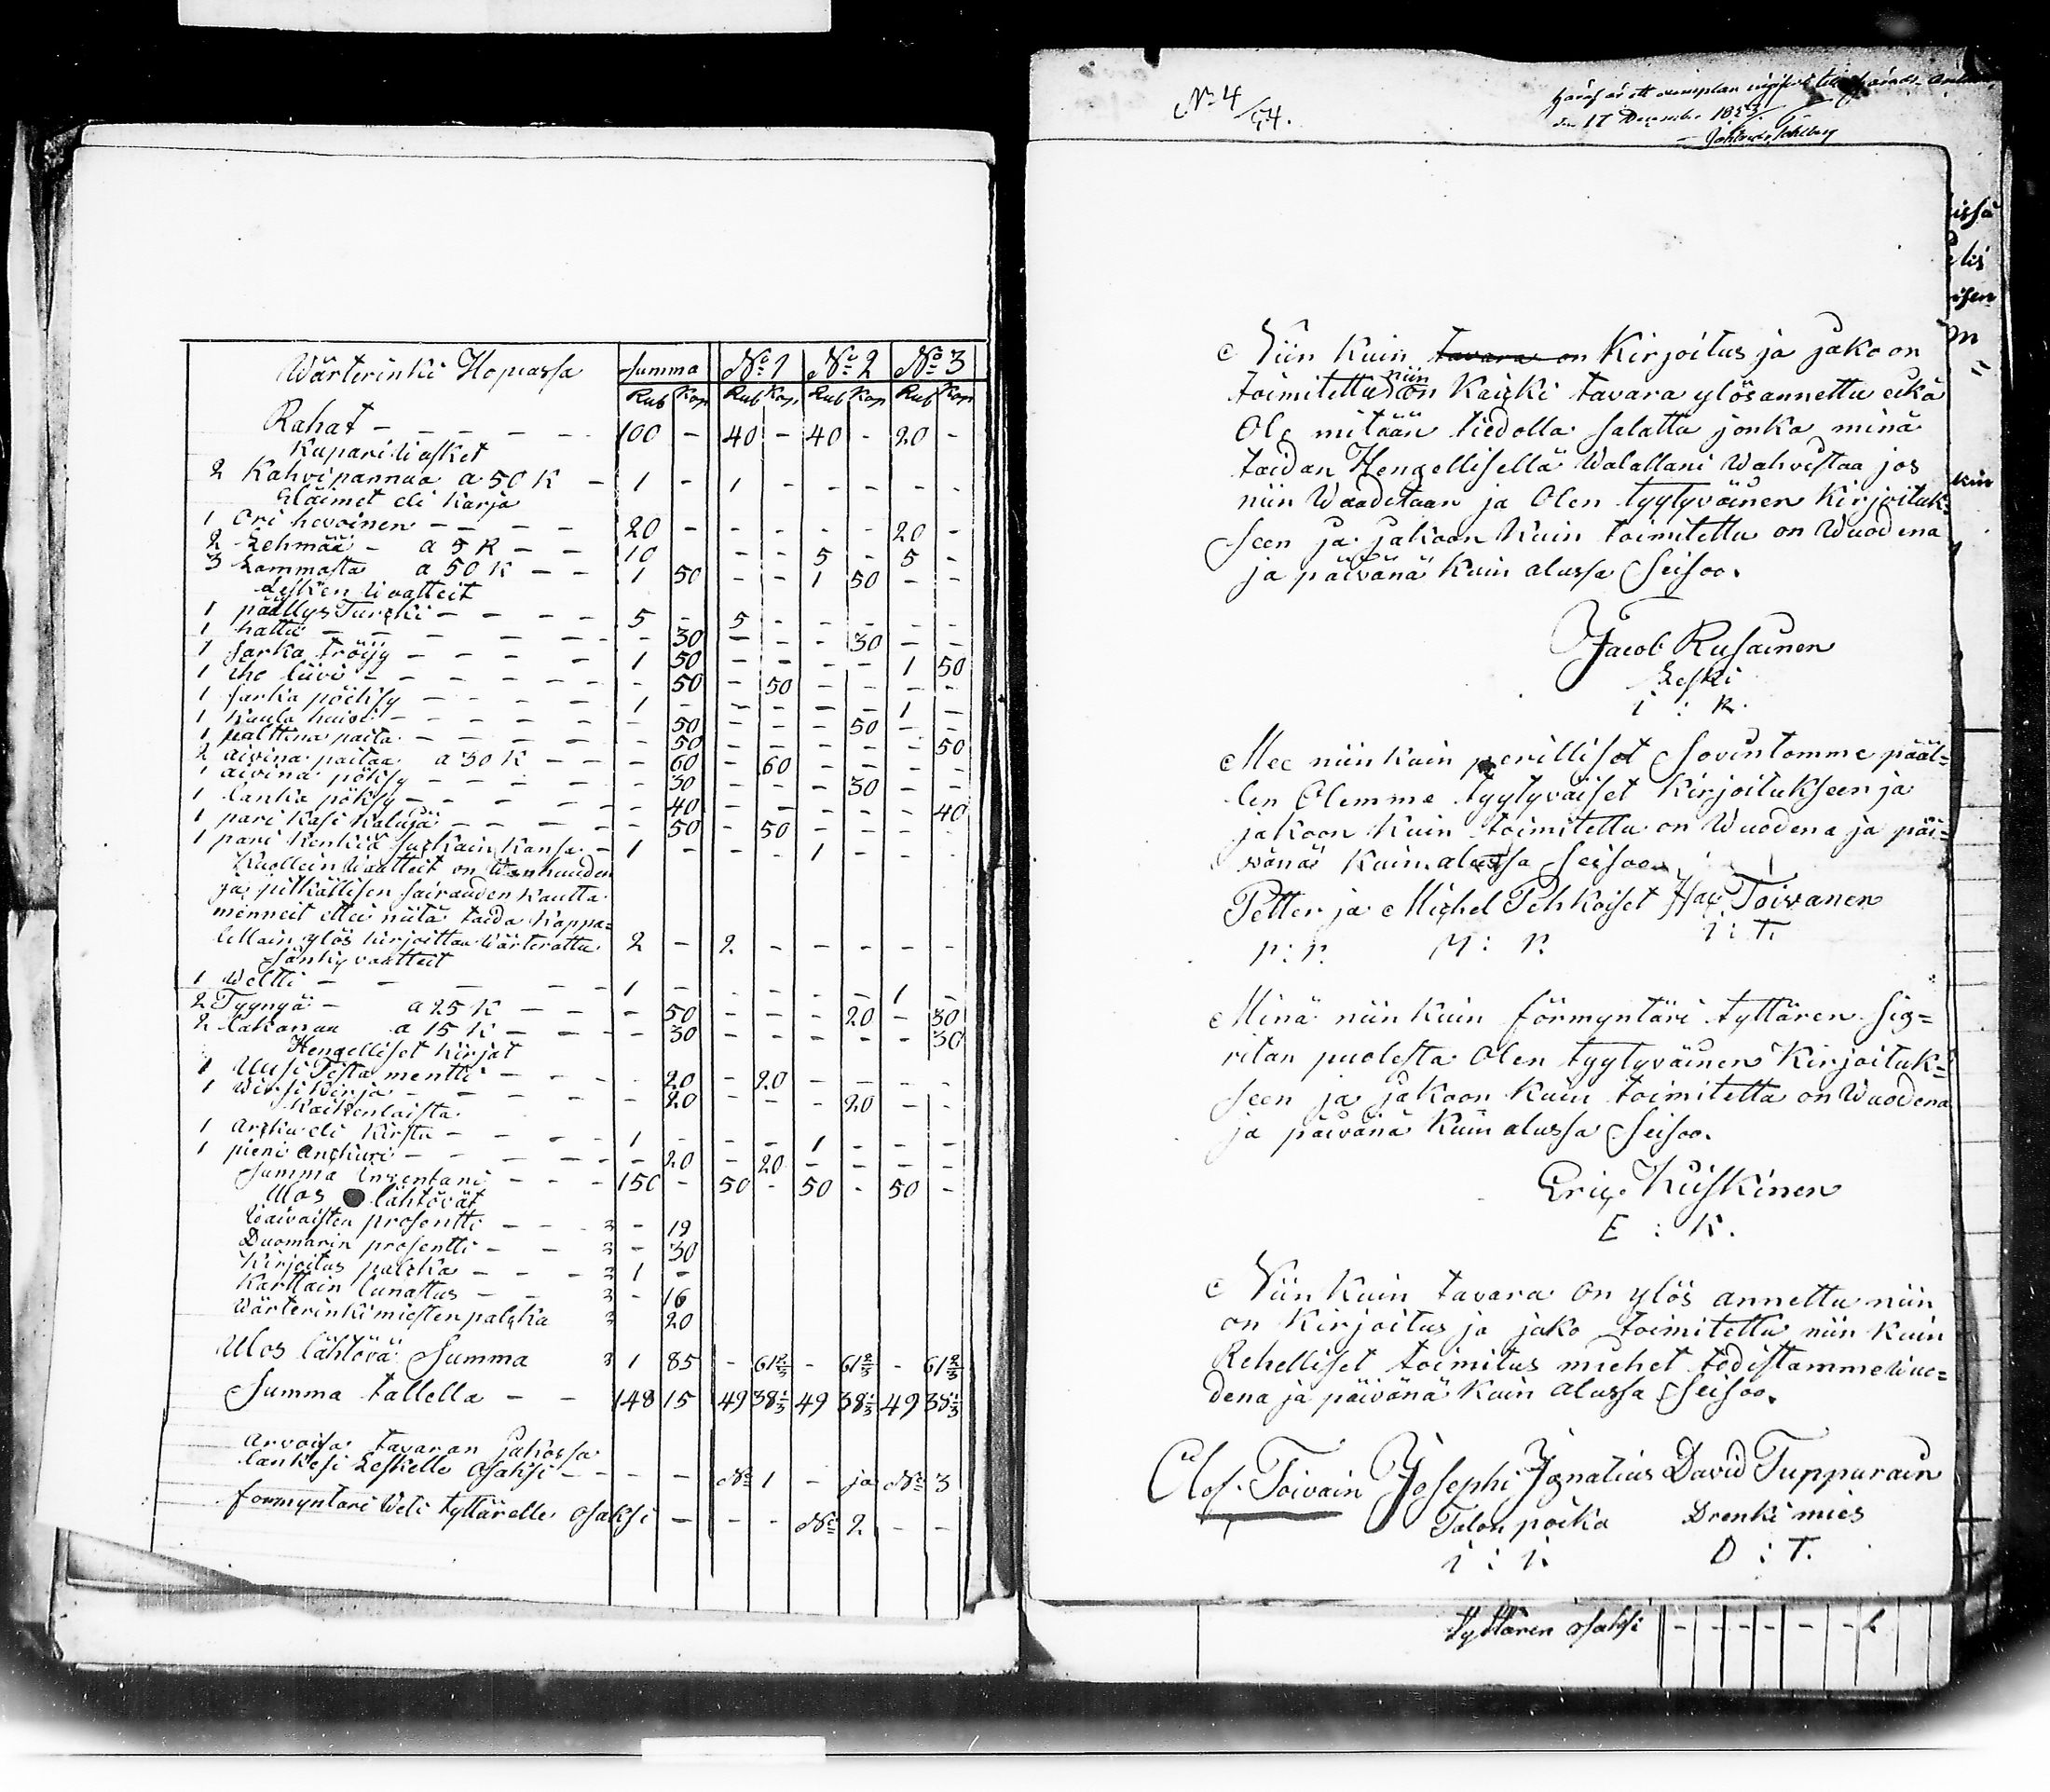 Wärterinki Hopiassa Summa No 1 No 2 No 3
Rub Kop Rub Kop Rub Kop Rub Kop
Rahat - - - - - 100 - 40 - 40 - 20 -
Kupari liasket
2 Kahvipannua a 50 K - 1 - 1 - - - - -
Eläimet eli Karja
1 Ori hevoinen - - - - 20 - - - - - 20 -
2 Lehmää - a 5 R - - 10 - - 5 - 5 -
3 Lammasta a 50 K - - 1 50 - - 1 50 - -
Lesken livatteit
1 päällys Turcki - - - - 5 - 5 - - - - -
1 hattu - - - - - - 30 - - - 30 - -
1 sarka tröijy - - - - 1 50 - - - - 1 50
1 iho liivi - - - - - - 50 - 50 - - - -
1 sarka pöcksy - - - - 1 - - - - - 1 -
1 Kaula huivi - - - - - - 50 - - - 50 - -
1 palttina paita - - - - - 50 - - - - - 50
2 aivina paitaa a 30 K - - - 60 - 60 - - - -
1 aivina pöksy - - - - - 30 - - - 30 - -
1 lanka pöksy - - - - - 40 - - - - - 40
1 pari Kasi Kaluja - - - - 50 - 50 - - - -
1 pari Kenkiä suckain Kansa - 1 - - - 1 - - -
Kuollein Waatteit on Wanhuuden
ja pitkällisen sairauden Kautta
menneit ettei niitä taida Kappa=
lettain ylös kirjoittaa Wärterattu 2 - 2 - - - - -
Sänky vaatteit
1 Weltti - - - - 1 - - - - - 1 -
2 Tyynyä - a 25 K - - - 50 - - - 20 - 30
2 lakanaa a 15 K - - - 30 - - - - - 30
Hengelliset Kirjat
1 Uusi Testa mentti - - - - 20 - 20 - - - -
1 Wirsi Kirja - - - - 20 - - - 20 - -
Kaikenlaista
1 Arcku eli Kirstu - - - - 1 - - - 1 - - -
1 pieni Anckuri - - - - - 20 - 20 - - - -
Summa Inventari - - - 150 - 50 - 50 - 50 -
Ulos lähtövät
Waivaisten prosentti - - - 19
Duomarin prosentti - - - 30
Kirjoitus palcka - - - 1 -
Karttain lunastus - - - 16
Wärterinki miesten palcka 20
Ulos lähtövä Summa 1 85 - 61 2/3 - 61 2/3 - 61 2/3
Summa tallella - - 148 15 49 38 1/3 49 38 1/3 49 38 1/3
Arvoisa tavaran jakossa
lankesi Leskelle Osaksi - - - - No 1 - ja No 3
formyntäri Weti tyttärelle Osaksi - - - No 2 - -
No 4/54.
den 17 December 1853
Niin kuin tavara on Kirjoitus ja jako on
toimitettu niin on Kaicki tavara ylösannettu eikä
Ole mitään tiedolla salattu jonka minä
taidan Hengellisellä Walallani Wahvistaa jos
niin Waaditaan ja Olen tyytyväinen Kirjoituk=
seen ja jakoon Kuin toimitettu on Wuodena
ja päivänä Kuin alussa Seisoo.
Jacob Rusainen
Leski
i : R.
Mee niinkuin perilliset Sovintomme pääl=
len Olemme tyytyväiset Kirjoitukseen ja
jakoon Kuin toimitettu on Wuodena ja päi=
vänä Kuin alussa Seisoo
Petter ja Michel Pehkoiset Jac Toivanen
P: P. M: P. i: T.
Minä niinkuin förmyntäri tyttären Sig=
ritan puolesta Olen tyytyväinen Kirjoituk=
seen ja jakoon Kuin toimitettu on Wuodena
ja päivänä Kuin alussa Seisoo.
Eric Kiiskinen
E : K.
Niinkuin tavara on ylös annettu niin
on Kirjoitus ja jako toimitettu niin kuin
Rehelliset toimitus miehet todistamme Wuo=
dena ja päivänä Kuin alussa Seisoo.
Olof Toivain Josephi Ignatius David Tuppurain
Talon poika Drenki mies
i : i. D : T.
tyttären osaksi - - - - - -